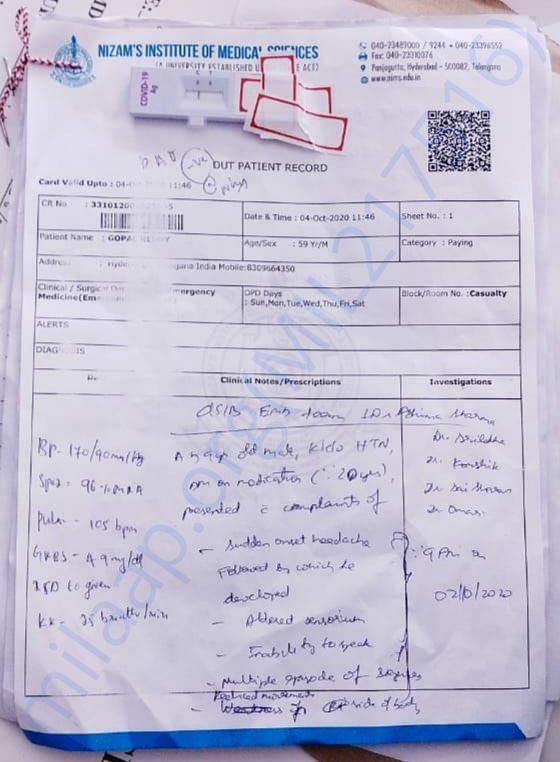 NIZAM'S INSTITUTE OF MEDICAL SCIENCES
(A UNIVERSITY ESTABLISHED U E ACT)
040-23489000 / 9244 • 040-23396552
Fax: 040-23310076
Panjagutta, Hyderabad - 500082, Telangana
www.nims.edu.in
COVID-19
Ag
C T
-ve
OUT PATIENT RECORD
Card Valid Upto : 04- 11:46
CR No : 33101200
Date & Time : 04-Oct-2020 11:46
Sheet No. : 1
Patient Name : GOPAL
Age/Sex : 59 Yr/M
Category : Paying
Address India Mobile:8309664350
Clinical / Surgical
Medicine(Eme ergency
OPD Days
: Sun,Mon,Tue,Wed,Thu,Fri,Sat
Block/Room No. :Casualty
ALERTS
DIAG IS
Clinical Notes/Prescriptions
Investigations
Sharma
BP- 170/90mm/Hg
SpO2 = 96% RA
Pulse - 105 bpm
GRBS - 49mg/dl
to given
RR - 25 breaths/min
A old male, K/c/o HTN,
DM on medication (: 20yrs),
presented c complaints of
- Sudden onset headache
Followed by which he
developed
- Altered sensorium
- Inability to speak
- Multiple episode of seizures
Reduced movements
- side of body
Dr.
Dr. Koushik
Dr Sai
Dr
: 9 Pm on
02/10/2020
milaap.org/MIL217516